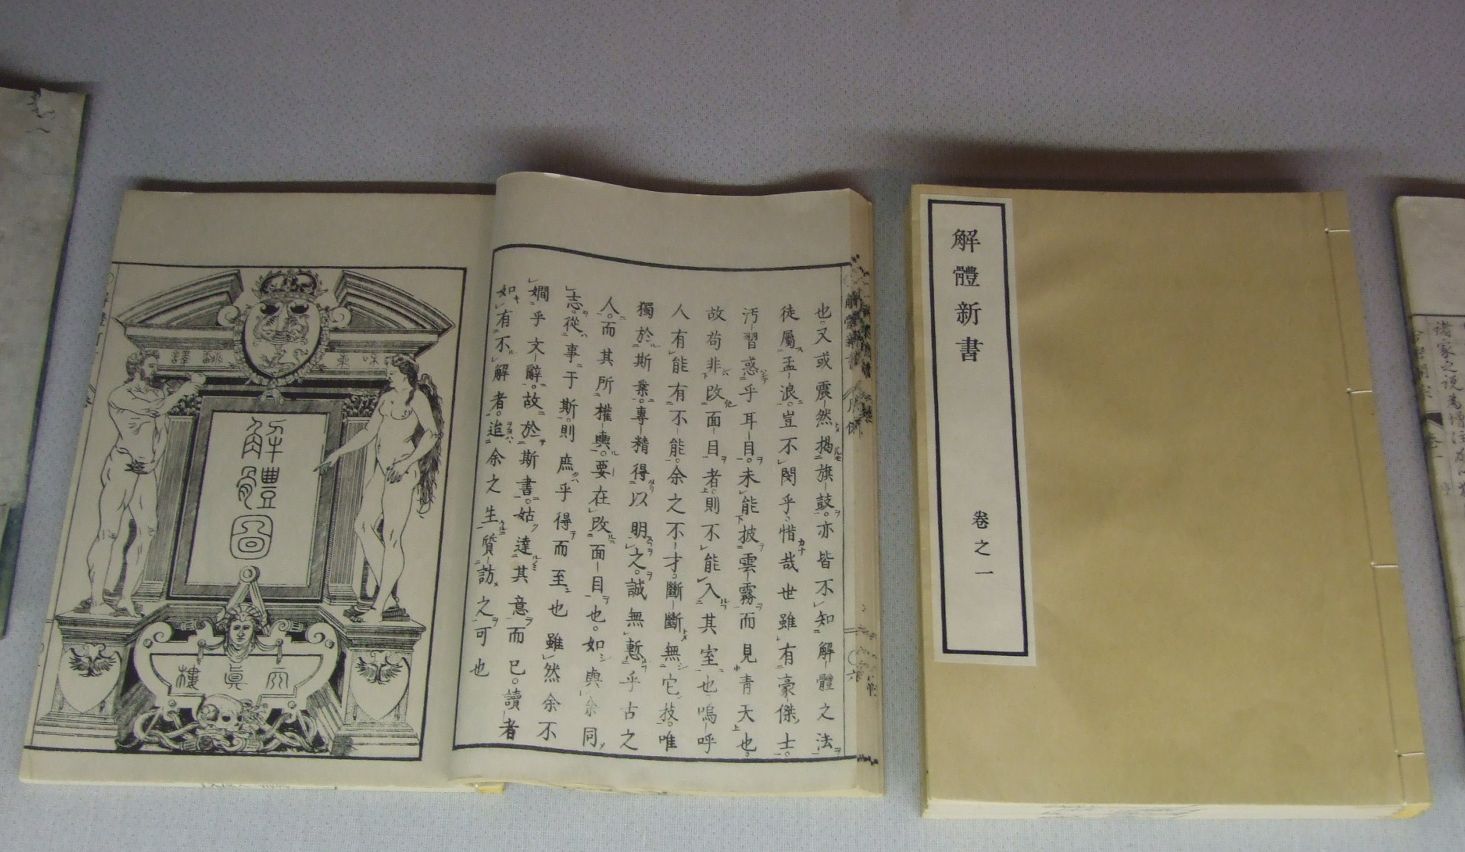 也又或震然揭旗鼓亦皆不知解體之法
徒屬孟浪豈不閔乎惜哉世雖有豪傑士
汚習惑乎耳目未能披雲霧而見青天也
故苟非改面目者則不能入其室也嗚呼
人有能有不能余之不才斷斷無它技唯
獨於斯業專精得以明之誠無慙乎古之
人而其所權輿要在改面目也如輿余同
志從事于斯則庶乎得而至也雖然余不
嫺乎文辭故於斯書姑達其意而已讀者
如有不解者迨余之生質訪之可也
解體圖
天眞樓
解體新書
卷之一